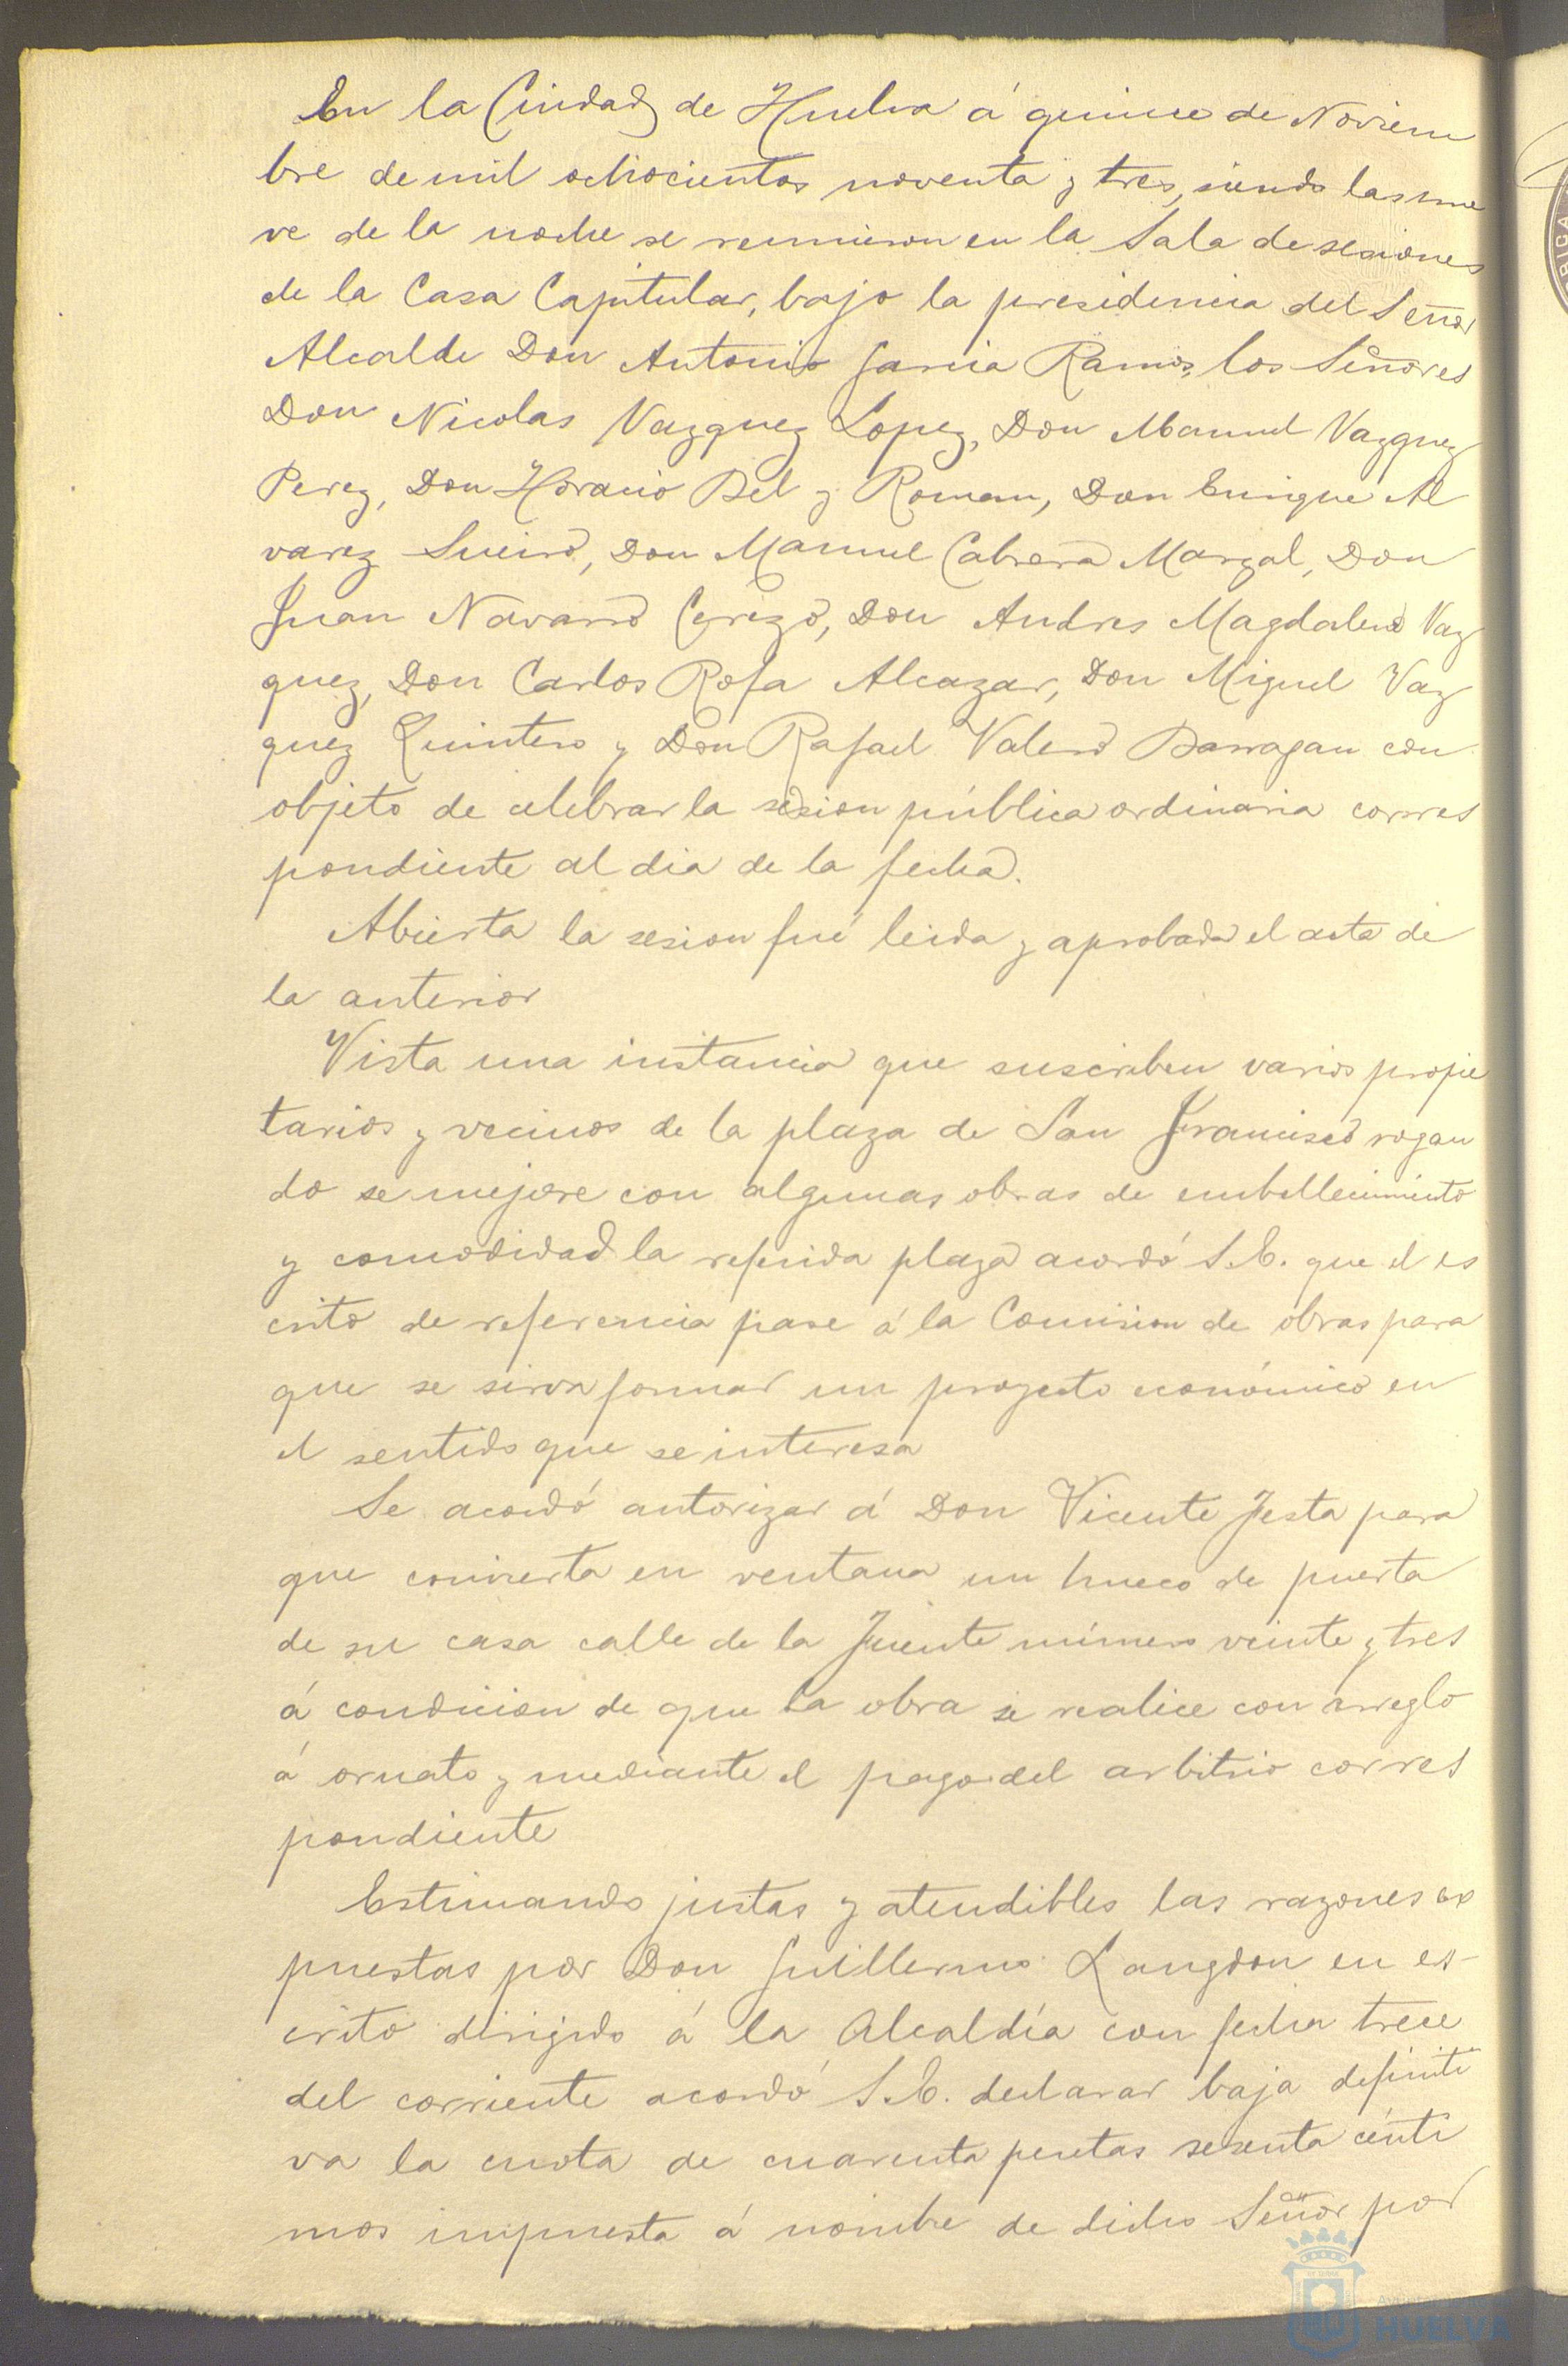 En la Ciudad de Huelva á quince de Noviem
bre de mil ochocientos noventa y tres, siendo las nue
ve de la noche se reunieron en la Sala de sesiones
de la Casa Capitular, bajo la presidencia del Señor
Alcalde Don Antonio Garcia Ramos, los Señores
Don Nicolas Vazquez Lopez, Don Manuel Vazquez
Perez, Don Horacio Bel y Roman, Don Enrique Al
varez Sueiro, Don Manuel Cabrera Marzal, Don
Juan Navarro Cerezo, Don Andres Magdaleno Vaz
quez, Don Carlos Rofa Alcazar, Don Miguel Vaz
quez Quintero y Don Rafael Valero Barragan con
objeto de celebrar la sesion pública ordinaria corres
pondiente al dia de la fecha.
Abierta la sesion fué leida y aprobada el acta de
la anterior
Vista una instancia que suscriben varios propie
tarios y vecinos de la plaza de San Francisco rogan
do se mejore con algunas obras de embellecimiento
y comodidad la referida plaza acordó S.E. que el es
crito de referencia pase á la Comision de obras para
que se sirva formar un proyecto económico en
el sentido que se interesa
Se acordó autorizar á Don Vicente Testa para
que convierta en ventana un hueco de puerta
de su casa calle de la Fuente número veinte y tres
á condicion de que la obra se realice con arreglo
á ornato y mediante el pago del arbitrio corres
pondiente
Estimando justas y atendibles las razones ex
puestas por Don Guillermo Langdon en es-
crito dirigido á la Alcaldía con fecha trece
del corriente acordó S.E. declarar baja definiti
va la cuota de cuarenta pesetas sesenta cénti
mos impuesta á nombre de dicho Señor por
HUELVA